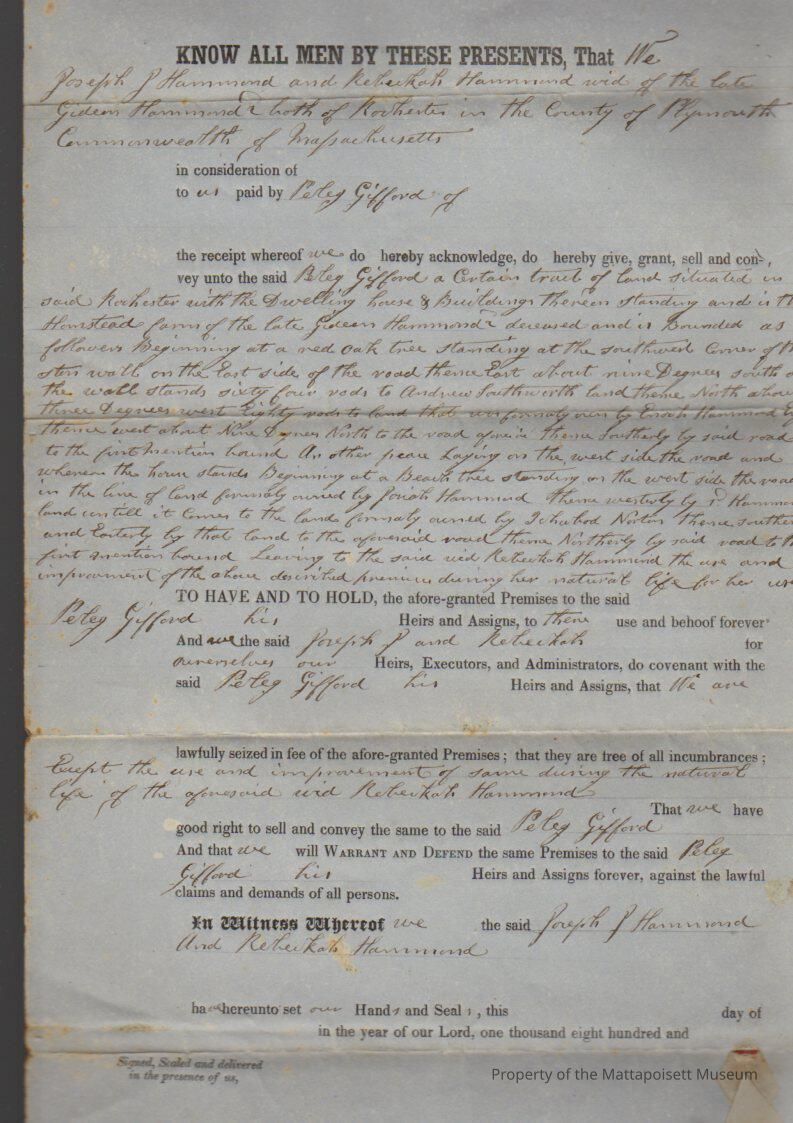 KNOW ALL MEN BY THESE PRESENTS, That We
Joseph J Hammond and Rebeckah Hammond wid of the late
Gideon Hammond 2d both of Rochester in the County of Plymouth
Commonwealth of Massachusetts
in consideration of
to us paid by Peleg Gifford of
the receipt whereof we do hereby acknowledge, do hereby give, grant, sell and con-,
vey unto the said Peleg Gifford a Certain tract of land situated in
said Rochester with the Dwelling house & Buildings thereon standing and is th
Homstead farm of the late Gideon Hammond 2d deceased and is Bounded as
followers Beginning at a red oak tree standing at the southwest Corner of th
wall on the East side of the road thence East about nine Degrees south
the wall stands sixty four rods to Andrew Southworth land thence North abou
three Degrees west Eighty rods to land that was formaly own by Enoch Hammond
thence west about Nine Degrees North to the road thence southerly by said road
to the first mention bound An other peace Laying on the west side the road and
wherein the house stands Beginning at a Beach tree standing on the west side the road
in the line of land formaly owned by Josiah Hammond thence westerly by sd Hammon
land untill it Comes to the land formaly owned by Ichabod Norton thence souther
and Easterly by that land to the aforesaid road thence Northerly by said road to th
first mention bound Leaving to the said wid Rebeckah Hammond the use and
improvment of the above described premises during her natural life for her use
TO HAVE AND TO HOLD, the afore-granted Premises to the said
Peleg Gifford his Heirs and Assigns, to there use and behoof forever
And we the said Joseph J and Rebeckah for
ourerselves our Heirs, Executors, and Administrators, do covenant with the
said Peleg Gifford his Heirs and Assigns, that We are
lawfully seized in fee of the afore-granted Premises; that they are free of all incumbrances;
Except the use and improvement of same during the natural
life of the aforesaid wid Rebeckah Hammond
That we have
good right to sell and convey the same to the said Peleg Gifford
And that we will WARRANT AND DEFEND the same Premises to the said Peleg
Gifford his Heirs and Assigns forever, against the lawful
claims and demands of all persons.
In Witness Whereof we the said Joseph J Hammond
And Rebeckah Hammond
have hereunto set our Hands and Seals, this day of
in the year of our Lord, one thousand eight hundred and
Signed, Sealed and delivered
in the presence of us,
Property of the Mattapoisett Museum